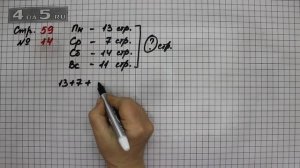 4 О 5.ru
Стр. 59
№ 14
Пн - 13 стр.
Ср - 7 стр.
Сб - 14 стр.
Вс - 11 стр.
? стр.
13+7+